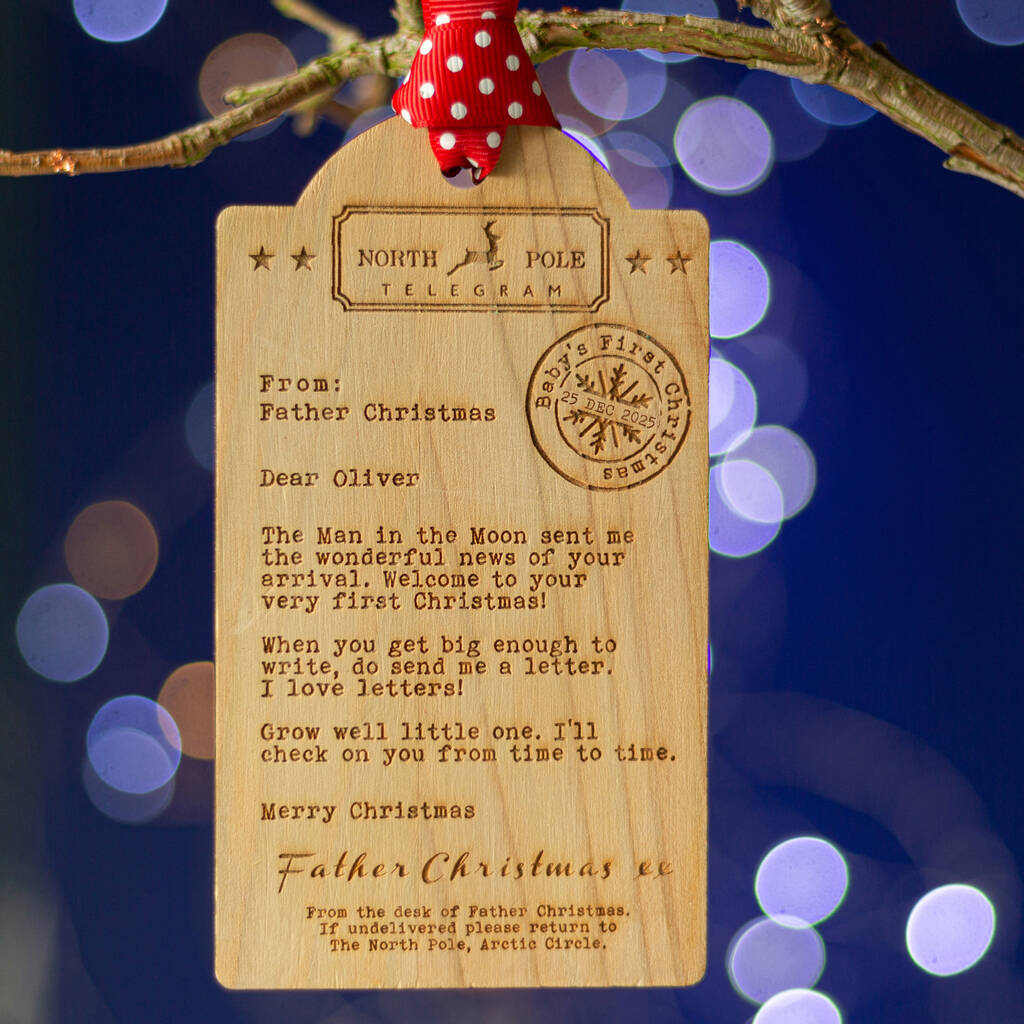 NORTH POLE
TELEGRAM
Baby's First Christmas
25 DEC 2025
From:
Father Christmas
Dear Oliver
The Man in the Moon sent me
the wonderful news of your
arrival. Welcome to your
very first Christmas!
When you get big enough to
write, do send me a letter.
I love letters!
Grow well little one. I'll
check on you from time to time.
Merry Christmas
Father Christmas xx
From the desk of Father Christmas.
If undelivered please return to
The North Pole, Arctic Circle.